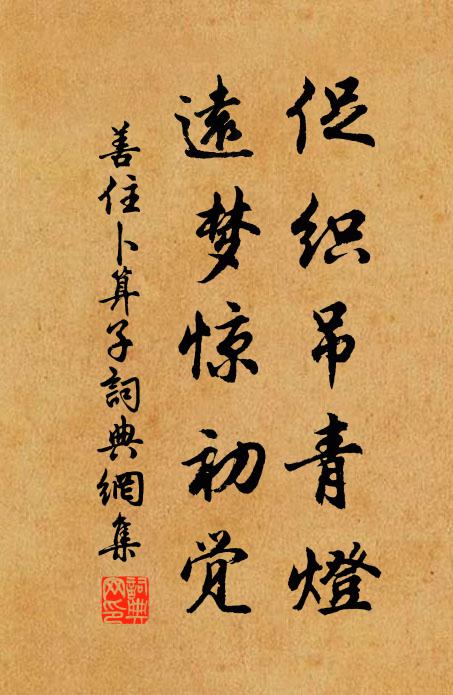 促织吊青燈
遠梦惊初觉
善住卜算子詞典網集
詞典网印